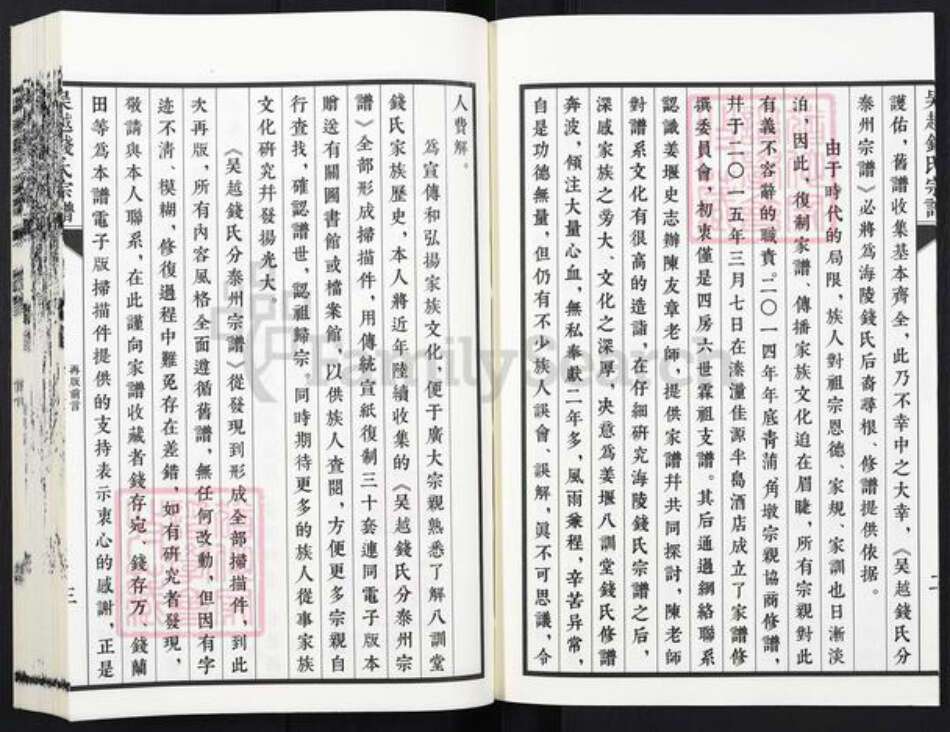 護佑，舊譜收集基本齊全，此乃不幸中之大幸，《吳越錢氏分
泰州宗譜》必將為海陵錢氏后裔尋根、修譜提供依据。
由于時代的局限，族人對祖宗恩德、家規、家訓也日漸淡
泊，因此，復制家譜、傳播家族文化迫在眉睫，所有宗親對此
有義不容辭的職責。二〇一四年年底青蒲、角墩宗親協商修譜，
幷于二〇一五年三月七日在溱潼佳源半島酒店成立了家譜修
撰委員會，初衷僅是四房六世霖祖支譜。其后通過網絡聯系
認識姜堰史志辦陳友章老師，提供家譜幷共同探討，陳老師
對譜系文化有很高的造詣，在仔細研究海陵錢氏宗譜之后，
深感家族之旁大、文化之深厚，决意為姜堰八訓堂錢氏修譜
奔波，傾注大量心血，無私奉獻二年多，風雨乘程，辛苦异常，
自是功德無量，但仍有不少族人誤會、誤解，真不可思議，令
吳越錢氏宗譜
二
人費解。
為宣傳和弘揚家族文化，便于廣大宗親熟悉了解八訓堂
錢氏家族歷史，本人將近年陸續收集的《吳越錢氏分泰州宗
譜》全部形成掃描件，用傳統宣紙復制三十套連同電子版本
贈送有關圖書館或檔案館，以供族人查閱，方便更多宗親自
行查找，確認譜世，認祖歸宗，同時期待更多的族人從事家族
文化研究幷發揚光大。
《吳越錢氏分泰州宗譜》從發現到形成全部掃描件，到此
次再版，所有內容風格全面遵循舊譜，無任何改動，但因有字
迹不清、模糊，修復過程中難免存在差錯，如有研究者發現，
敬請與本人聯系，在此謹向家譜收藏者錢存宛、錢存万、錢蘭
田等為本譜電子版掃描件提供的支持表示衷心的感謝，正是
吳越錢氏宗譜
再版前言
三
FamilySearch